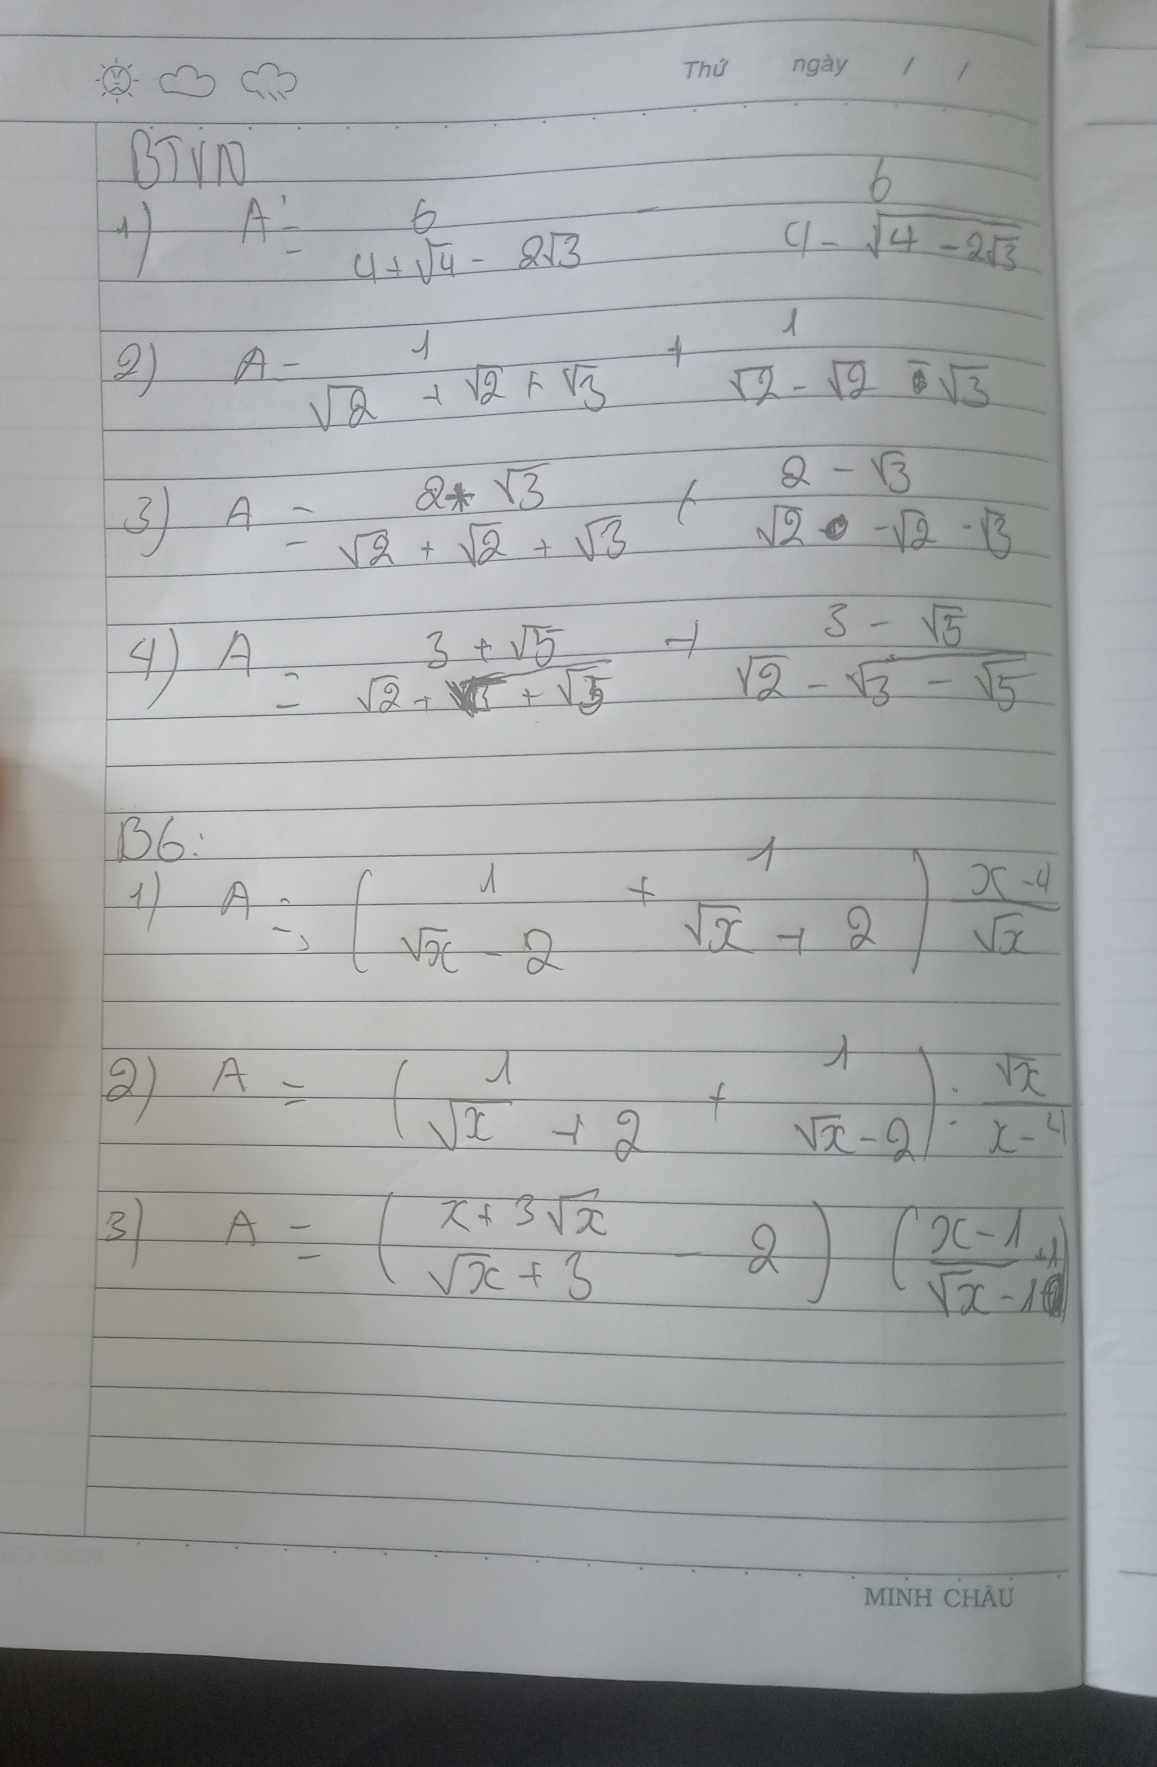 Thứ ngày / /
BTVN
1) A = 6/(4+√4 - 2√3) - 6/(4 - √(4 - 2√3))
2) A = 1/(√2 + √2 + √3) + 1/(√2 - √2 - √3)
3) A = (2 + √3)/(√2 + √2 + √3) + (2 - √3)/(√2 - √2 - √3)
4) A = (3 + √5)/(√2 + √(3 + √5)) + (3 - √5)/(√2 - √(3 - √5))
B6:
1) A = (1/(√x - 2) + 1/(√x + 2)) (x - 4)/√x
2) A = (1/(√x + 2) + 1/(√x - 2)) : √x/(x - 4)
3) A = ((x + 3√x)/(√x + 3) - 2) ((x - 1)/(√x - 1) + 1)
MINH CHÂU